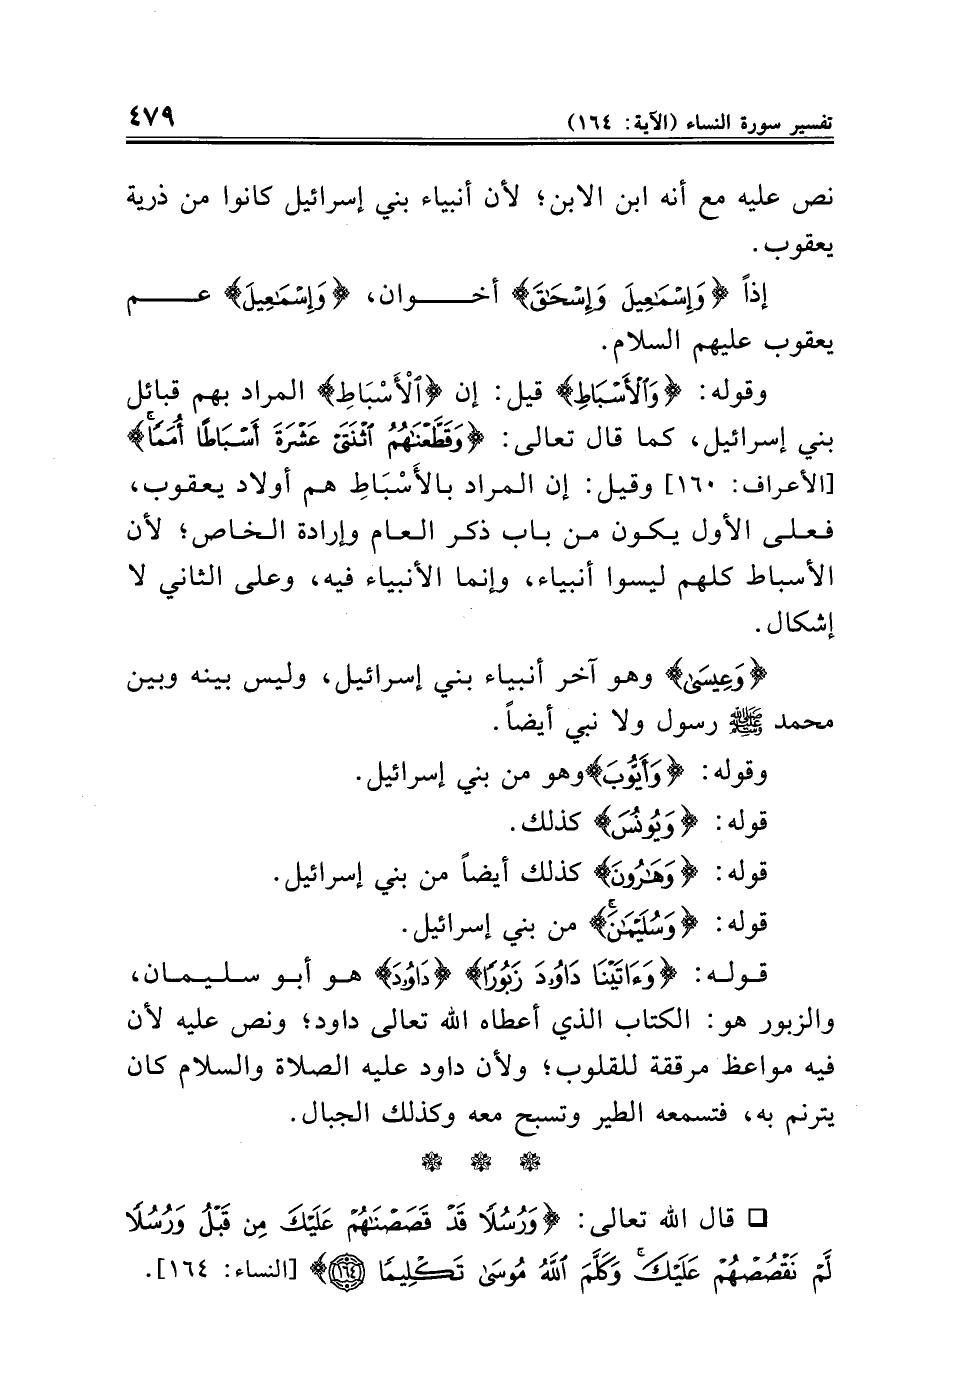 تفسير سورة النساء (الآية: ١٦٤) ٤٧٩
نص عليه مع أنه ابن الابن؛ لأن أنبياء بني إسرائيل كانوا من ذرية
يعقوب.
إذاً ﴿وَإِسْمَٰعِيلَ وَإِسْحَٰقَ﴾ أخـــوان، ﴿وَإِسْمَٰعِيلَ﴾ عـــم
يعقوب عليهم السلام.
وقوله: ﴿وَٱلْأَسْبَاطِ﴾ قيل: إن ﴿ٱلْأَسْبَاطِ﴾ المراد بهم قبائل
بني إسرائيل، كما قال تعالى: ﴿وَقَطَّعْنَٰهُمُ ٱثْنَتَىْ عَشْرَةَ أَسْبَاطًا أُمَمًا ۚ﴾
[الأعراف: ١٦٠] وقيل: إن المراد بالأَسْبَاطِ هم أولاد يعقوب،
فعلى الأول يكون من باب ذكر العام وإرادة الخاص؛ لأن
الأسباط كلهم ليسوا أنبياء، وإنما الأنبياء فيه، وعلى الثاني لا
إشكال.
﴿وَعِيسَىٰ﴾ وهو آخر أنبياء بني إسرائيل، وليس بينه وبين
محمد ﷺ رسول ولا نبي أيضاً.
وقوله: ﴿وَأَيُّوبَ﴾وهو من بني إسرائيل.
قوله: ﴿وَيُونُسَ﴾ كذلك.
قوله: ﴿وَهَٰرُونَ﴾ كذلك أيضاً من بني إسرائيل.
قوله: ﴿وَسُلَيْمَٰنَ ۚ﴾ من بني إسرائيل.
قوله: ﴿وَءَاتَيْنَا دَاوُۥدَ زَبُورًا﴾ ﴿دَاوُۥدَ﴾ هو أبو سليمان،
والزبور هو: الكتاب الذي أعطاه الله تعالى داود؛ ونص عليه لأن
فيه مواعظ مرققة للقلوب؛ ولأن داود عليه الصلاة والسلام كان
يترنم به، فتسمعه الطير وتسبح معه وكذلك الجبال.
❁ ❁ ❁
❑ قال الله تعالى: ﴿وَرُسُلًا قَدْ قَصَصْنَٰهُمْ عَلَيْكَ مِن قَبْلُ وَرُسُلًا
لَّمْ نَقْصُصْهُمْ عَلَيْكَ ۚ وَكَلَّمَ ٱللَّهُ مُوسَىٰ تَكْلِيمًا ١٦٤﴾ [النساء: ١٦٤].